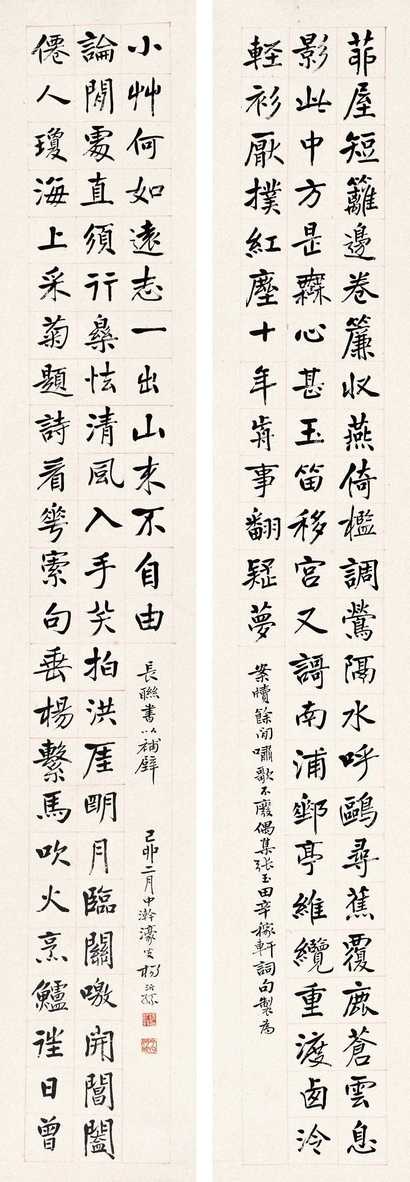 茆屋短籬邊卷簾收燕倚檻調鶯隔水呼鷗尋蕉覆鹿蒼雲息
影此中方是橆心甚玉笛移宮又謌南浦郵亭維纜重渡卥泠
輕衫厭撲紅塵十年歬事翻疑夢
案牘餘閒嘯歌不廢偶集張玉田辛稼軒詞句製為
僊人瓊海上采菊題詩看華索句垂楊繫馬吹火烹鱸往日曾
論閒處直須行樂怯清風入手笑拍洪厓朙月臨關噭開閶闔
小艸何如遠志一出山來不自由
長聯書以補壁
己卯二月中澣濠叟楊沂孫